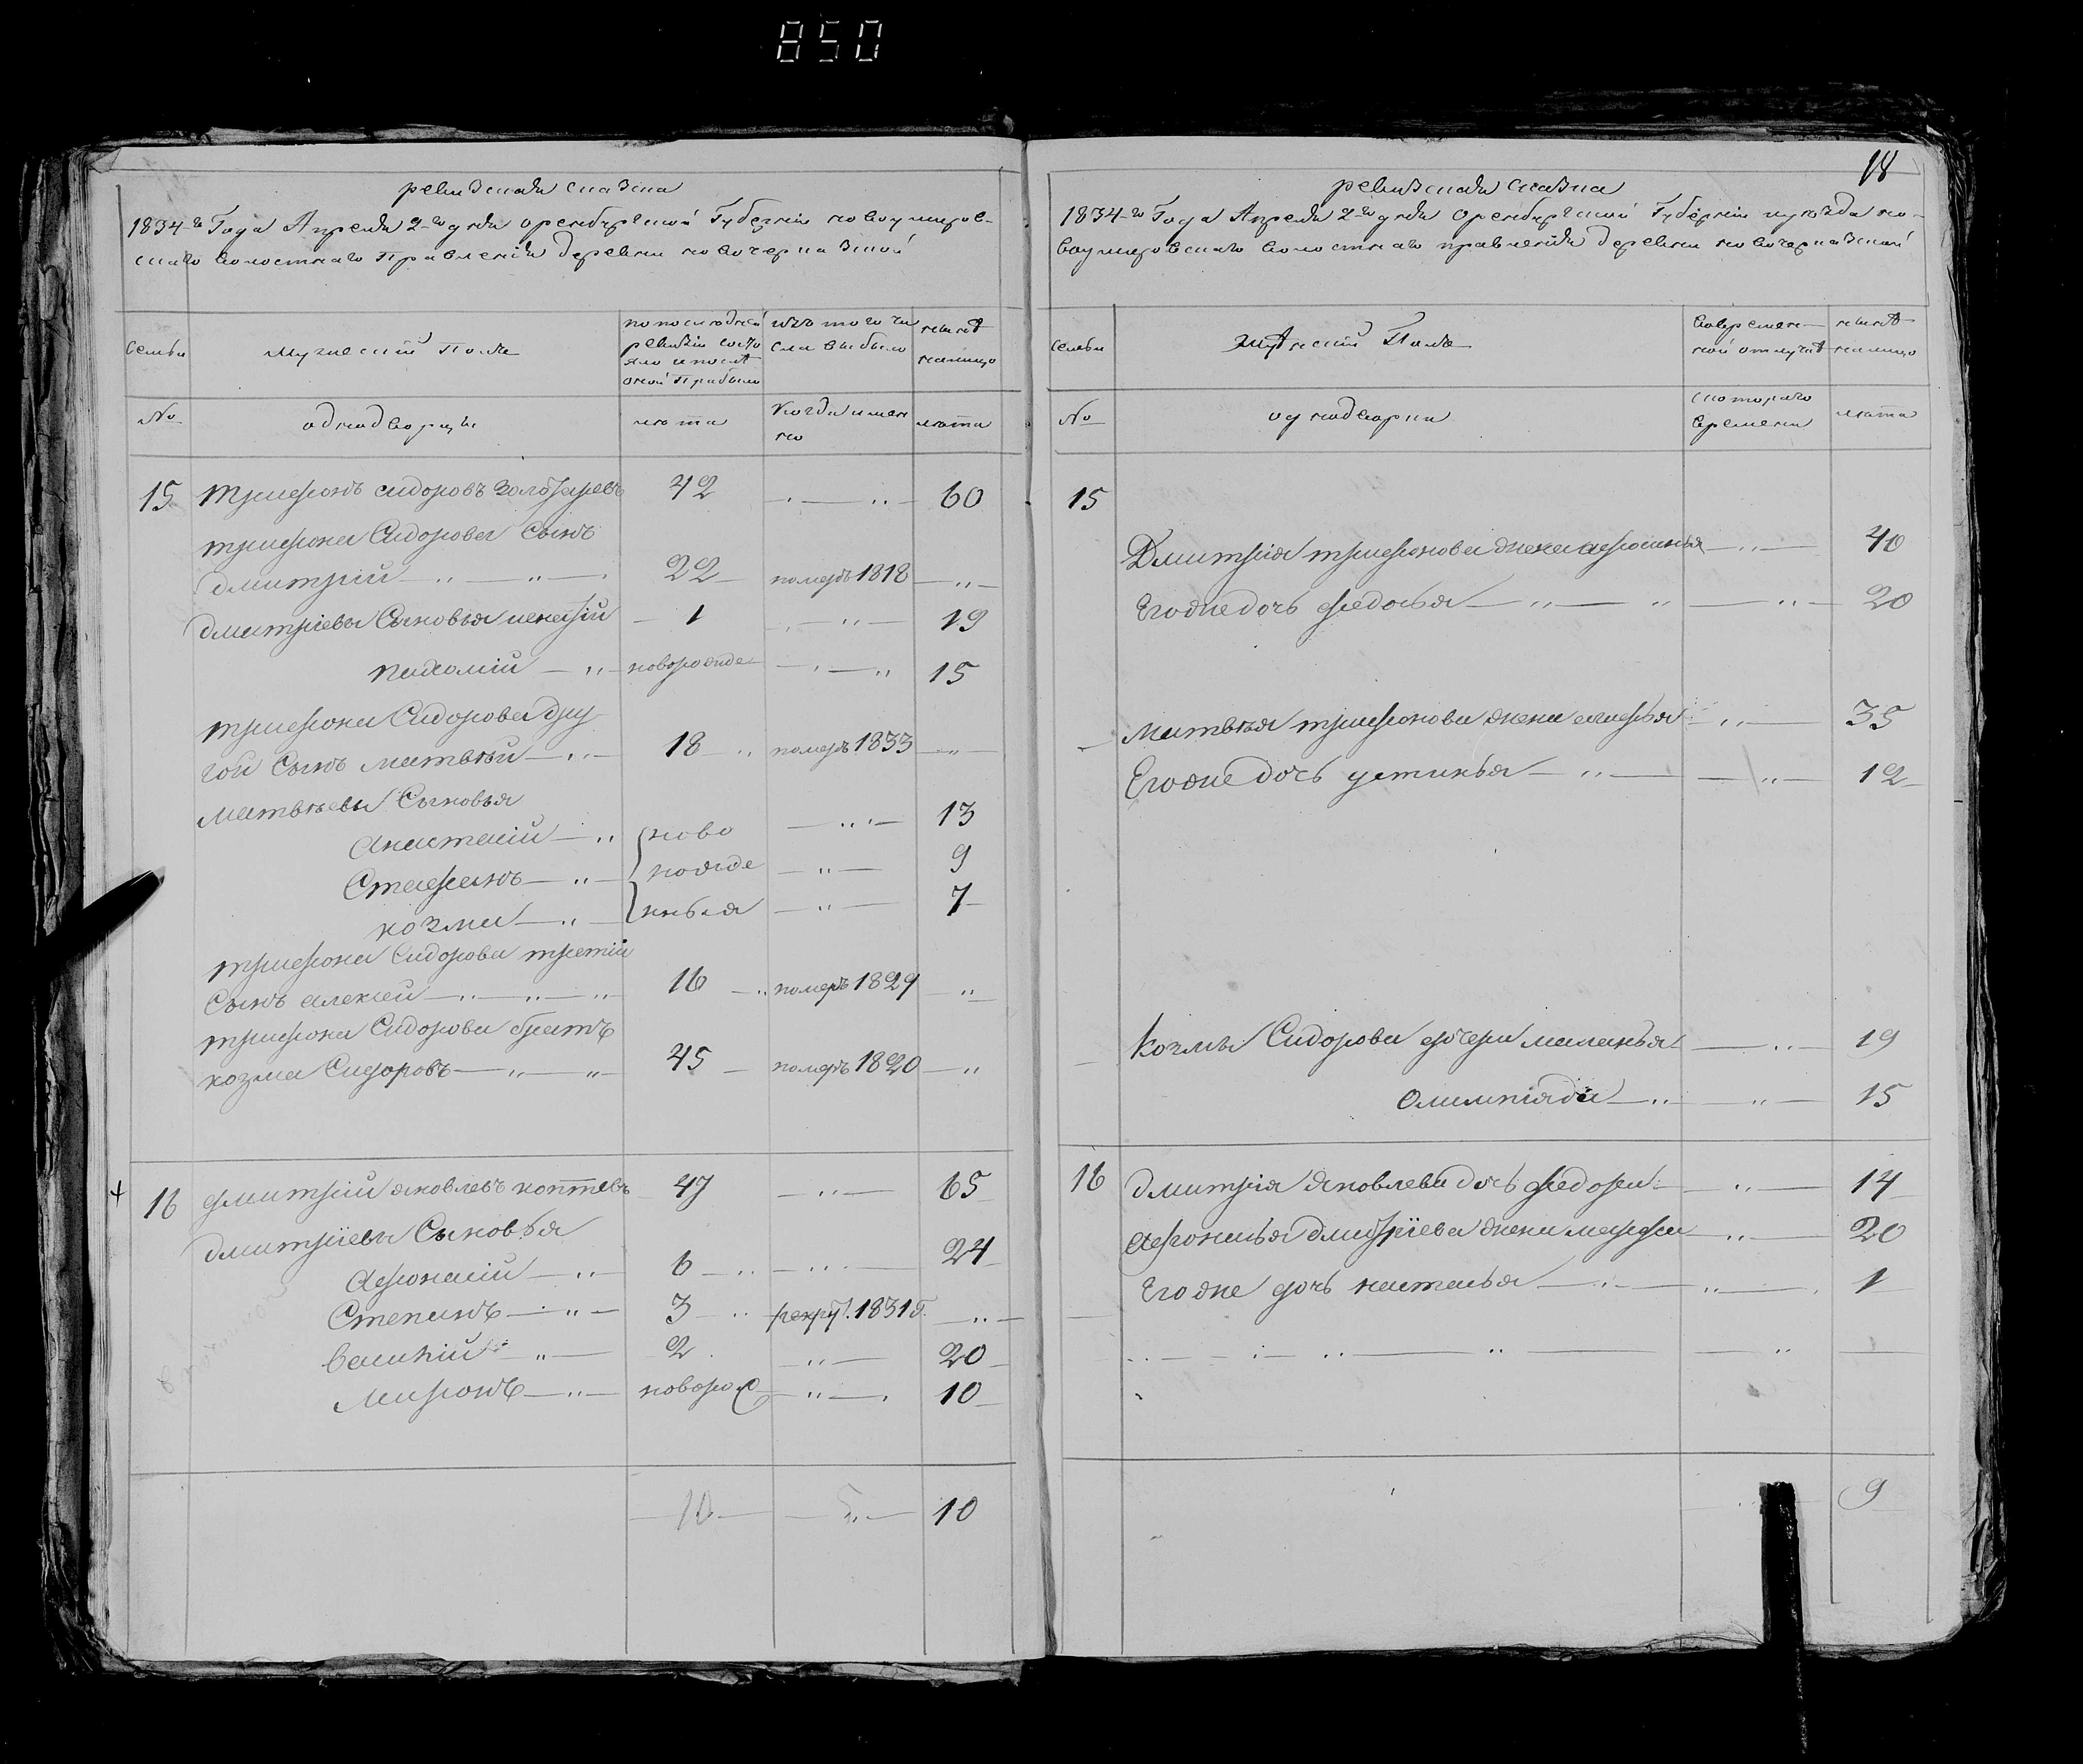 850
ревизская сказка
1834-го Года Апреля 2-го дня оренбургской Губернии новоумиров-
скаго волостнаго Правления деревни новочеркаской
семьи
мужеский Полъ
по последней ревизии состояло и после оной Прибыло
изъ того числа выбыло
ныне на лицо
№
однодворцы
лета
Когда имянно
лета
15 трифонъ сидоровъ 42 60
трифона Сидорова Сынъ
дмитрий 22 померъ 1818
дмитриевы Сыновья 1 19
пахомий новорожде 15
трифона Сидорова дру
гой Сынъ матвѣй 18 померъ 1833
матвѣевы Сыновья
Анастасий ново 13
Стафанъ рожде 9
козма нныя 7
трифона Сидорова третий
Сынъ алексей 16 померъ 1829
трифона Сидорова братъ
козма Сидоровъ 45 померъ 1820
16 дмитрий яковлевъ коптевъ 47 65
дмитриевы Сыновья
Афонасий 6 24
Степанъ 3 рекру. 1831 г.
Василий 2 20
Миронъ новорож 10
10 5 10
18
ревизская сказка
1834-го Года Апреля 2-го дня Оренбургской Губернии уезда но-
воумировскаго волостнаго правления деревни новочеркаской
семьи
Женский Полъ
во временной отлучке
ныне на лицо
№
однодворки
с котораго времени
лета
15
Дмитрия трифонова жена афросинья 40
Его же дочь федосья 20
матвѣя трифонова жена 35
Его же дочь устинья 12
Козмы Сидорова дочери маланья 19
Олимпияда 15
16 дмитрия яковлева дочь федора 14
Афонасья дмитриева жена марфа 20
Его же дочь наталья 1
9